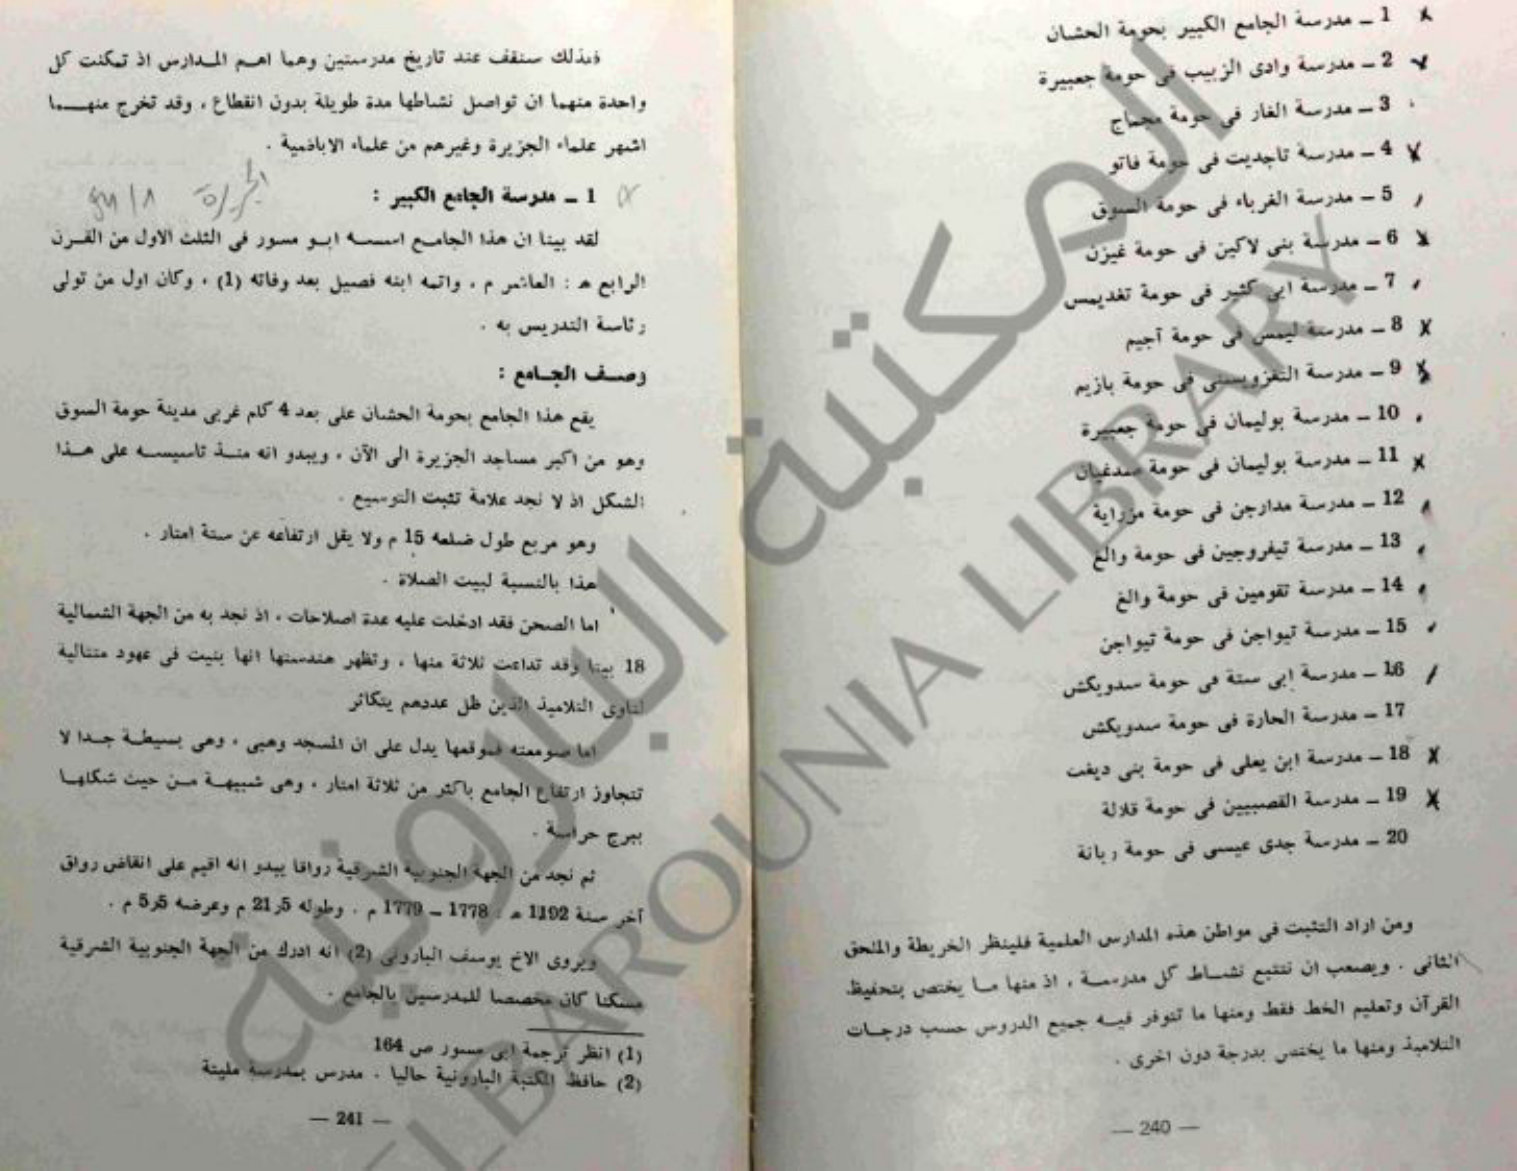 1 ــ مدرسة الجامع الكبير بحومة الحشان
2 ــ مدرسة وادى الزبيب فى حومة جعبيرة
3 ــ مدرسة الغار فى حومة مجماج
4 ــ مدرسة تاجديت فى حومة فاتو
5 ــ مدرسة الغرباء فى حومة السوق
6 ــ مدرسة بنى لاكين فى حومة غيزن
7 ــ مدرسة ابى كثير فى حومة تغديمس
8 ــ مدرسة ليمس فى حومة آجيم
9 ــ مدرسة التغزويسنى فى حومة بازيم
10 ــ مدرسة بوليمان فى حومة جعبيرة
11 ــ مدرسة بوليمان فى حومة صدغيان
12 ــ مدرسة مدارجن فى حومة مزراية
13 ــ مدرسة تيفروجين فى حومة والغ
14 ــ مدرسة تقومين فى حومة والغ
15 ــ مدرسة تيواجن فى حومة تيواجن
16 ــ مدرسة ابى ستة فى حومة سدويكش
17 ــ مدرسة الحارة فى حومة سدويكش
18 ــ مدرسة ابن يعلى فى حومة بنى ديغت
19 ــ مدرسة القصبيين فى حومة قلالة
20 ــ مدرسة جدى عيسى فى حومة ربانة
ومن اراد التثبت فى مواطن هذه المدارس العلمية فلينظر الخريطة والملحق
الثانى . ويصعب ان نتتبع نشاط كل مدرسة ، اذ منها ما يختص بتحفيظ
القرآن وتعليم الخط فقط ومنها ما تتوفر فيه جميع الدروس حسب درجات
التلاميذ ومنها ما يختص بدرجة دون اخرى .
— 240 —
فبذلك سنقف عند تاريخ مدرستين وهما اهم المدارس اذ تمكنت كل
واحدة منهما ان تواصل نشاطها مدة طويلة بدون انقطاع ، وقد تخرج منهما
اشهر علماء الجزيرة وغيرهم من علماء الاباضية .
1 ــ مدرسة الجامع الكبير :
الجزيرة
لقد بينا ان هذا الجامع اسسه ابو مسور فى الثلث الاول من القرن
الرابع هـ : العاشر م ، واتمه ابنه فصيل بعد وفاته (1) ، وكان اول من تولى
رئاسة التدريس به .
وصف الجامع :
يقع هذا الجامع بحومة الحشان على بعد 4 كام غربى مدينة حومة السوق
وهو من اكبر مساجد الجزيرة الى الآن ، ويبدو انه منذ تاسيسه على هذا
الشكل اذ لا نجد علامة تثبت التوسيع .
وهو مربع طول ضلعه 15 م ولا يقل ارتفاعه عن ستة امتار .
هذا بالنسبة لبيت الصلاة .
اما الصحن فقد ادخلت عليه عدة اصلاحات ، اذ نجد به من الجهة الشمالية
18 بيتا وقد تداعت ثلاثة منها ، وتظهر هندستها انها بنيت فى عهود متتالية
لتاوى التلاميذ الذين ظل عددهم يتكاثر
اما صومعته فموقعها يدل على ان المسجد وهبى ، وهى بسيطة جدا لا
تتجاوز ارتفاع الجامع باكثر من ثلاثة امتار ، وهى شبيهة من حيث شكلها
ببرج حراسة .
ثم نجد من الجهة الجنوبية الشرقية رواقا يبدو انه اقيم على انقاض رواق
آخر سنة 1192 هـ : 1778 ــ 1779 م . وطوله 21ر5 م وعرضه 5ر5 م .
ويروى الاخ يوسف البارونى (2) انه ادرك من الجهة الجنوبية الشرقية
مسكنا كان مخصصا للمدرسين بالجامع .
(1) انظر ترجمة ابى مسور ص 164
(2) حافظ المكتبة البارونية حاليا . مدرس بمدرسة مليتة
— 241 —
المكتبة البارونية
ELBAROUNIA LIBRARY